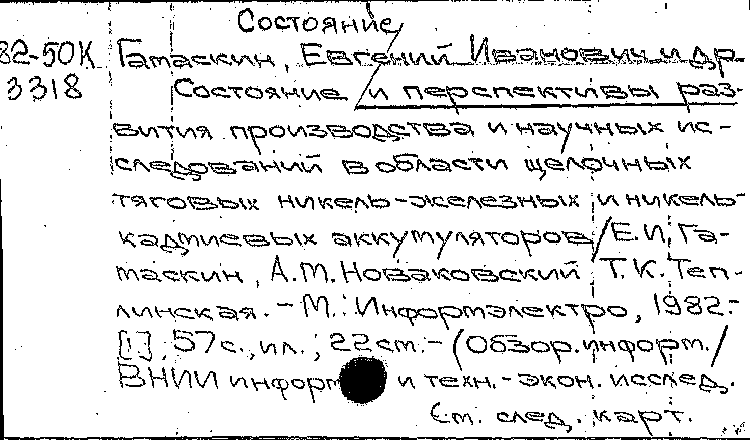 Состояние
82-50К Гатаскин, Евгений Иванович и др.
3318 Состояние и перспективы раз-
вития производства и научных ис-
следований в области щелочных
тяговых никель-железных и никель-
кадмиевых аккумуляторов / Е.И. Га-
таскин, А.М. Новаковский Т.К. Теп-
линская. - М.: Информэлектро, 1982.-
[1], 57 с., ил.; 22 см. - (Обзор. информ. /
ВНИИ информ и техн.-экон. исслед.
См. след. карт.